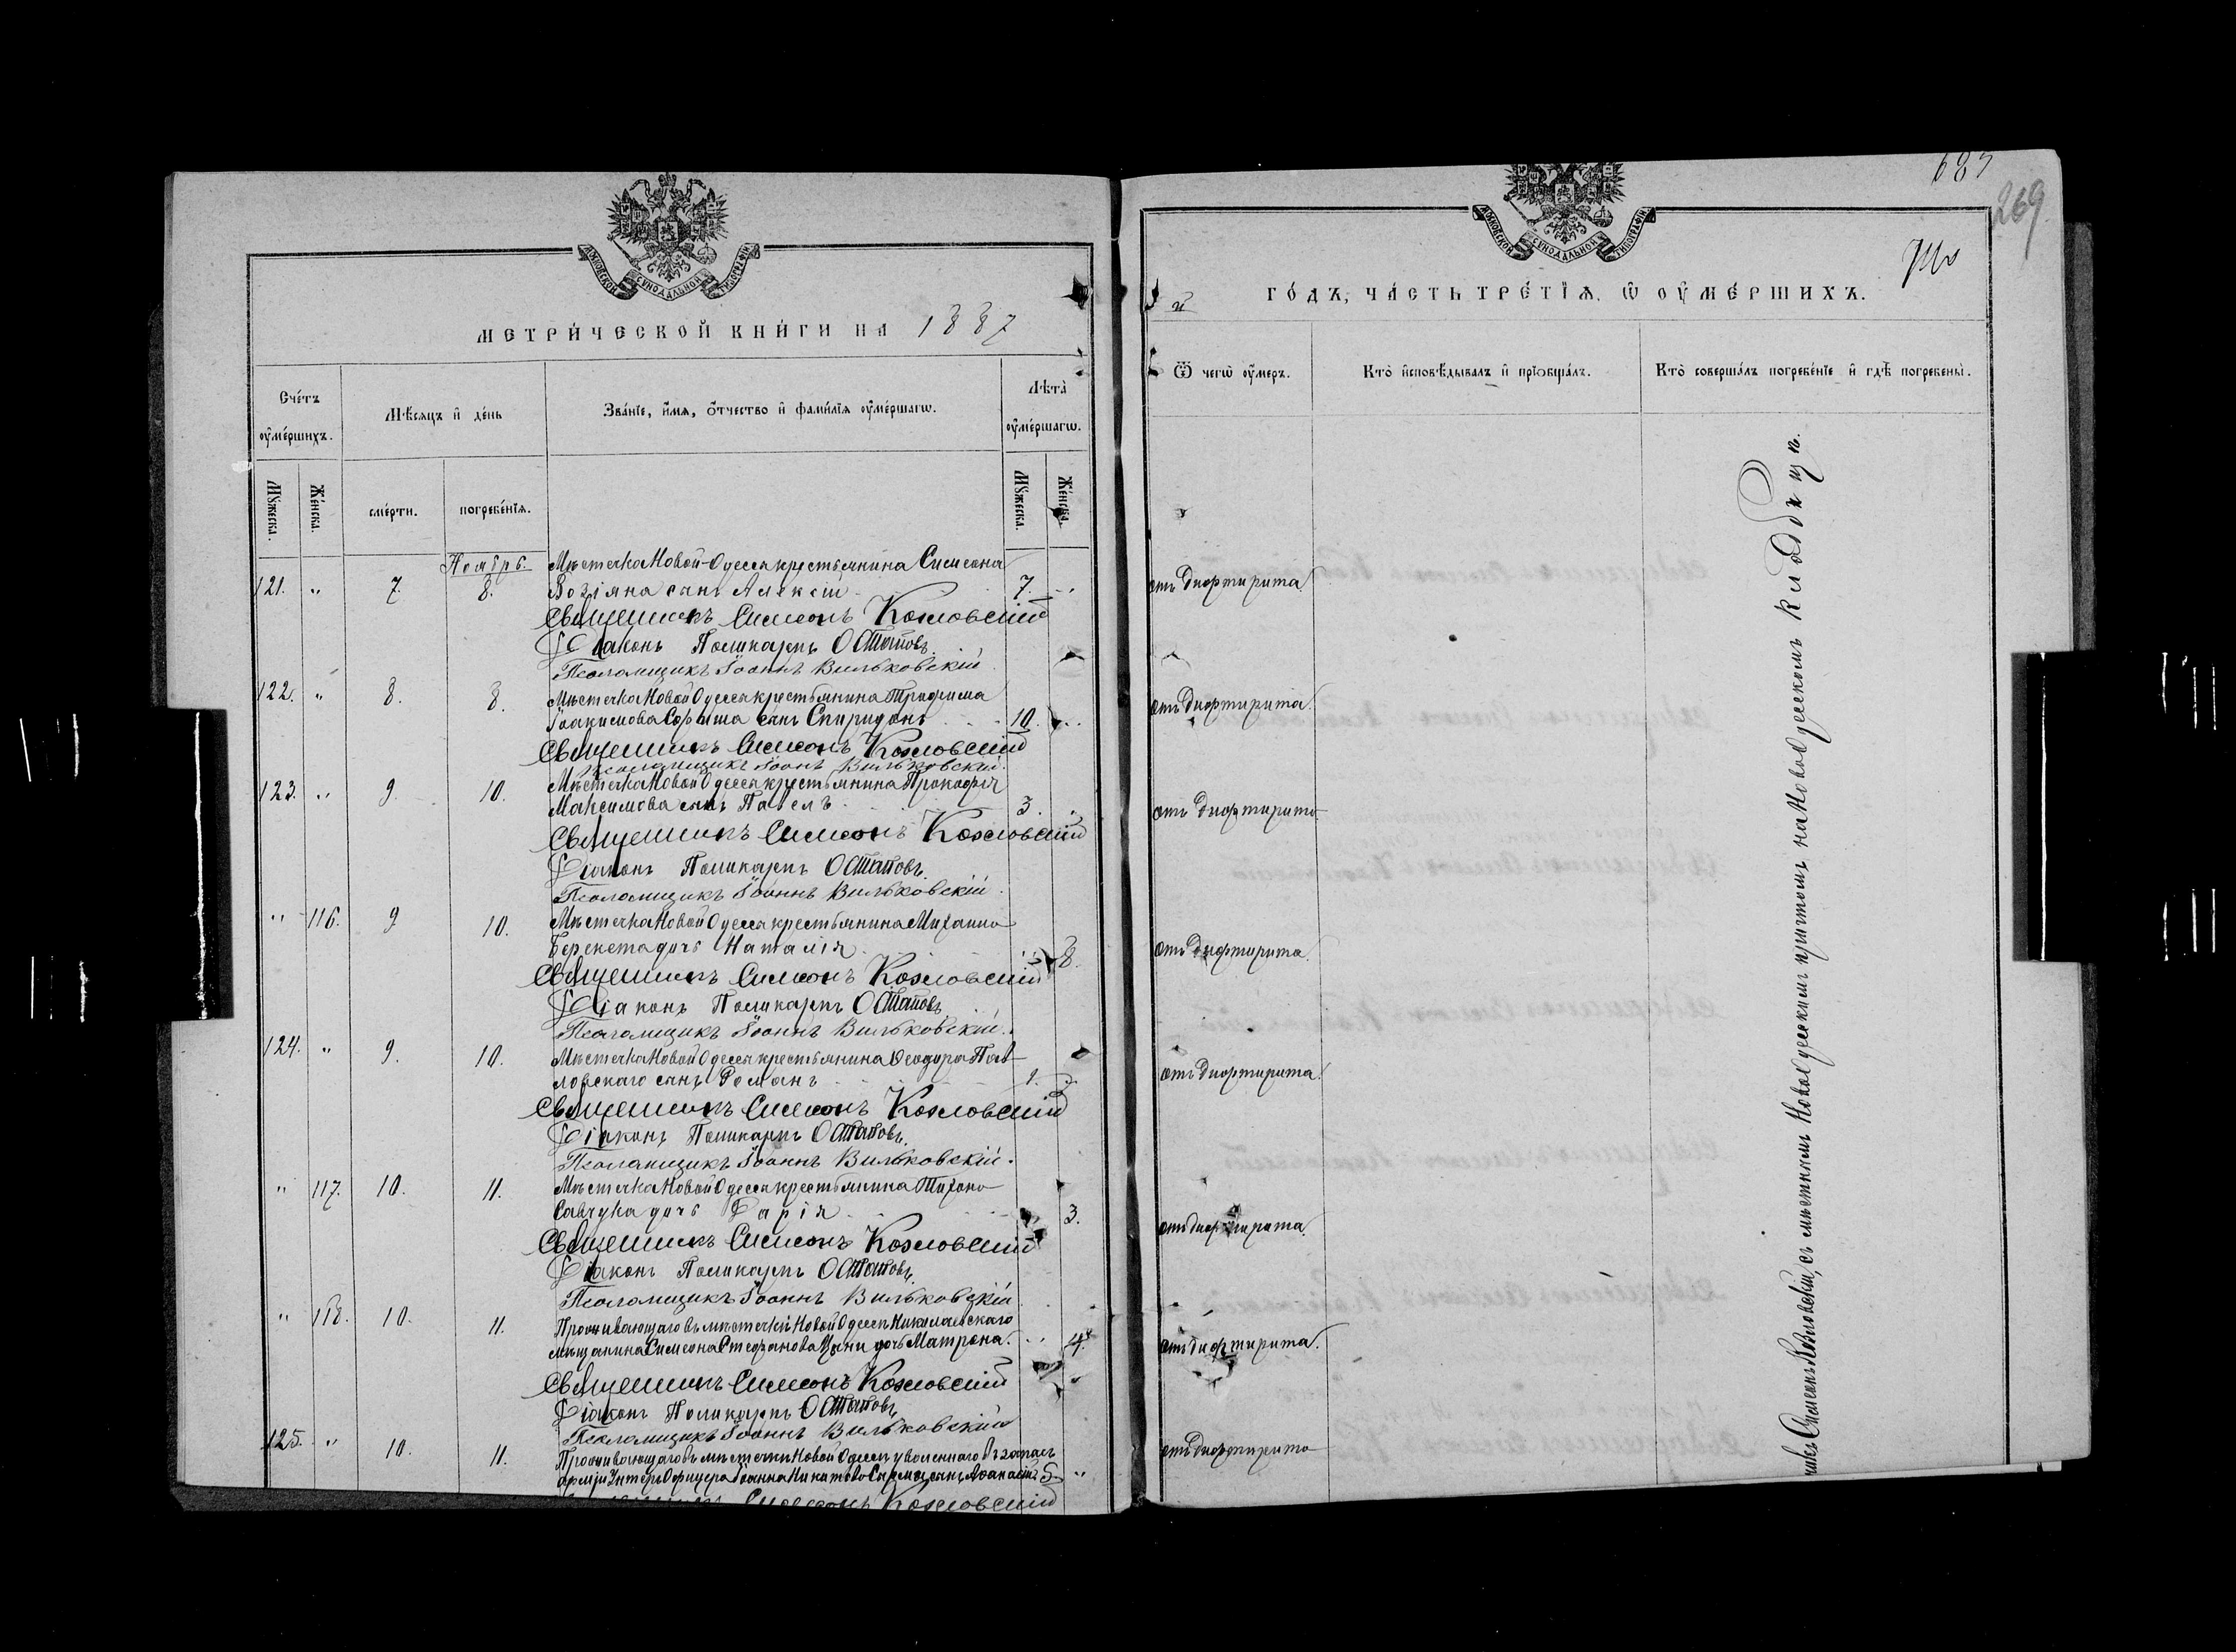 МОСКОВСКОЙ СѴНОДАЛЬНОЙ ТИПОГРАФІИ
МЕТРИ́ЧЕСКОЙ КНИ́ГИ НА 1887
Сче́тъ ᲂу҆ме́ршихъ.
Мѣ́сяцъ и҆ де́нь
Зва́нїе, и҆́мя, ѻ҆́тчество и҆ фами́лїя ᲂу҆ме́ршагѡ.
Лѣта̀ ᲂу҆ме́ршагѡ.
Мꙋ́жеска.
Же́нска.
сме́рти.
погребе́нїѧ.
Мꙋ́жеска.
Же́нска.
Ноябрь
Мѣстечка Новой-Одессы крестьянина Симеона
121. " 7. 8. Возіяна сынъ Алексій 7. "
Священникъ Симеонъ Козловскій
Діаконъ Поликарпъ Остаповъ.
Псаломщикъ Іоаннъ Вильковскій
122. " 8. 8. Мѣстечка Новой Одессы крестьянина Трофима
Іоакимова сынъ Спиридонъ 10. "
Священникъ Симеонъ Козловскій
Псаломщикъ Іоаннъ Вильковскій.
123. " 9. 10. Мѣстечка Новой Одессы крестьянина Прокофія
Максимова сынъ Павелъ 3. "
Священникъ Симеонъ Козловскій
Діаконъ Поликарпъ Остаповъ.
Псаломщикъ Іоаннъ Вильковскій.
" 116. 9. 10. Мѣстечка Новой Одессы крестьянина Михаила
Берекета дочь Наталія " 8.
Священникъ Симеонъ Козловскій
Діаконъ Поликарпъ Остаповъ
Псаломщикъ Іоаннъ Вильковскій.
124. " 9. 10. Мѣстечка Новой Одессы крестьянина Ѳеодора Пав-
ловскаго сынъ Романъ 1. "
Священникъ Симеонъ Козловскій
Діаконъ Поликарпъ Остаповъ.
Псаломщикъ Іоаннъ Вильковскій.
" 117. 10. 11. Мѣстечка Новой Одессы крестьянина Тихона
Савчука дочь Дарія " 3.
Священникъ Симеонъ Козловскій
Діаконъ Поликарпъ Остаповъ.
Псаломщикъ Іоаннъ Вильковскій
" 118. 10. 11. Проживающаго въ мѣстечкѣ Новой Одессѣ Николаевскаго
мѣщанина Симеона Стефанова дочь Матрона. " 4.
Священникъ Симеонъ Козловскій
Діаконъ Поликарпъ Остаповъ
Псаломщикъ Іоаннъ Вильковскій
125. " 10. 11. Проживающаго въ мѣстечкѣ Новой Одессѣ уволеннаго въ запасъ
арміи Унтеръ Офицера Іоанна Никитова сынъ Аѳанасій 5. "
Симеонъ Козловскій
269.
МОСКОВСКОЙ СѴНОДАЛЬНОЙ ТИПОГРАФІИ
й
ГО́ДЪ, ЧА́СТЬ ТРЕ́ТЇѦ, Ѡ҆ ОУ҆МЕ́РШИХЪ.
Ѿ чегѡ̀ ᲂу҆́меръ.
Кто̀ и҆сповѣ́дывалъ и҆ прїѡбща́лъ.
Кто̀ соверша́лъ погребе́нїе и҆ гдѣ̀ погребены̀.
отъ дифтирита
отъ дифтирита
отъ дифтирита
отъ дифтирита.
отъ дифтирита.
отъ дифтирита.
отъ дифтирита.
отъ дифтирита
Симеонъ Козловскій, съ мѣстнымъ Новоодесскимъ причтомъ на Новоодесскомъ кладбищѣ.